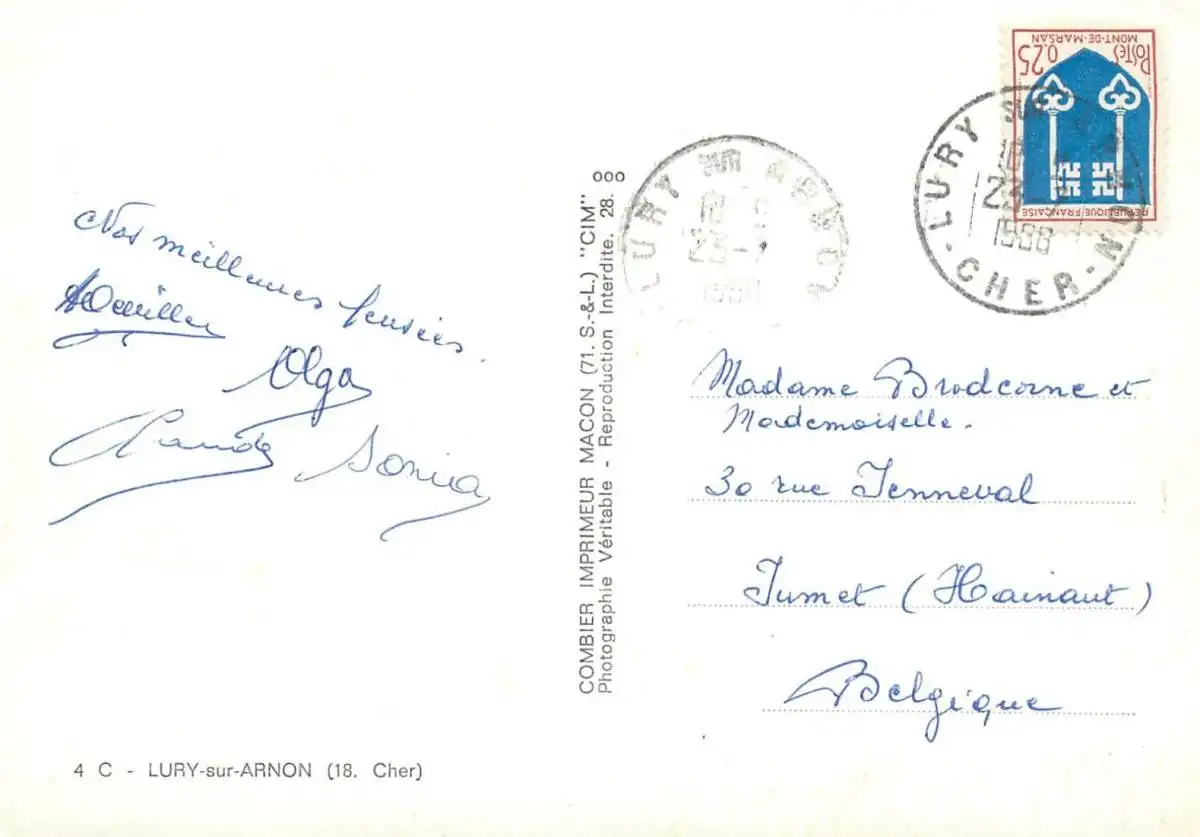 Nos meilleures pensées.
Olga
Claude Sonia
4 C - LURY-sur-ARNON (18. Cher)
COMBIER IMPRIMEUR MACON (71. S.-&-L.) "CIM"
Photographie Véritable - Reproduction Interdite. 28. 000
LURY SUR ARNON
18
23-7
LURY SUR NON
CHER
23
1968
POSTES 0.25
MONT-DE-MARSAN
REPUBLIQUE FRANÇAISE
Madame Brodcorne et
Mademoiselle.
30 rue Jenneval
Jumet (Hainaut)
Belgique